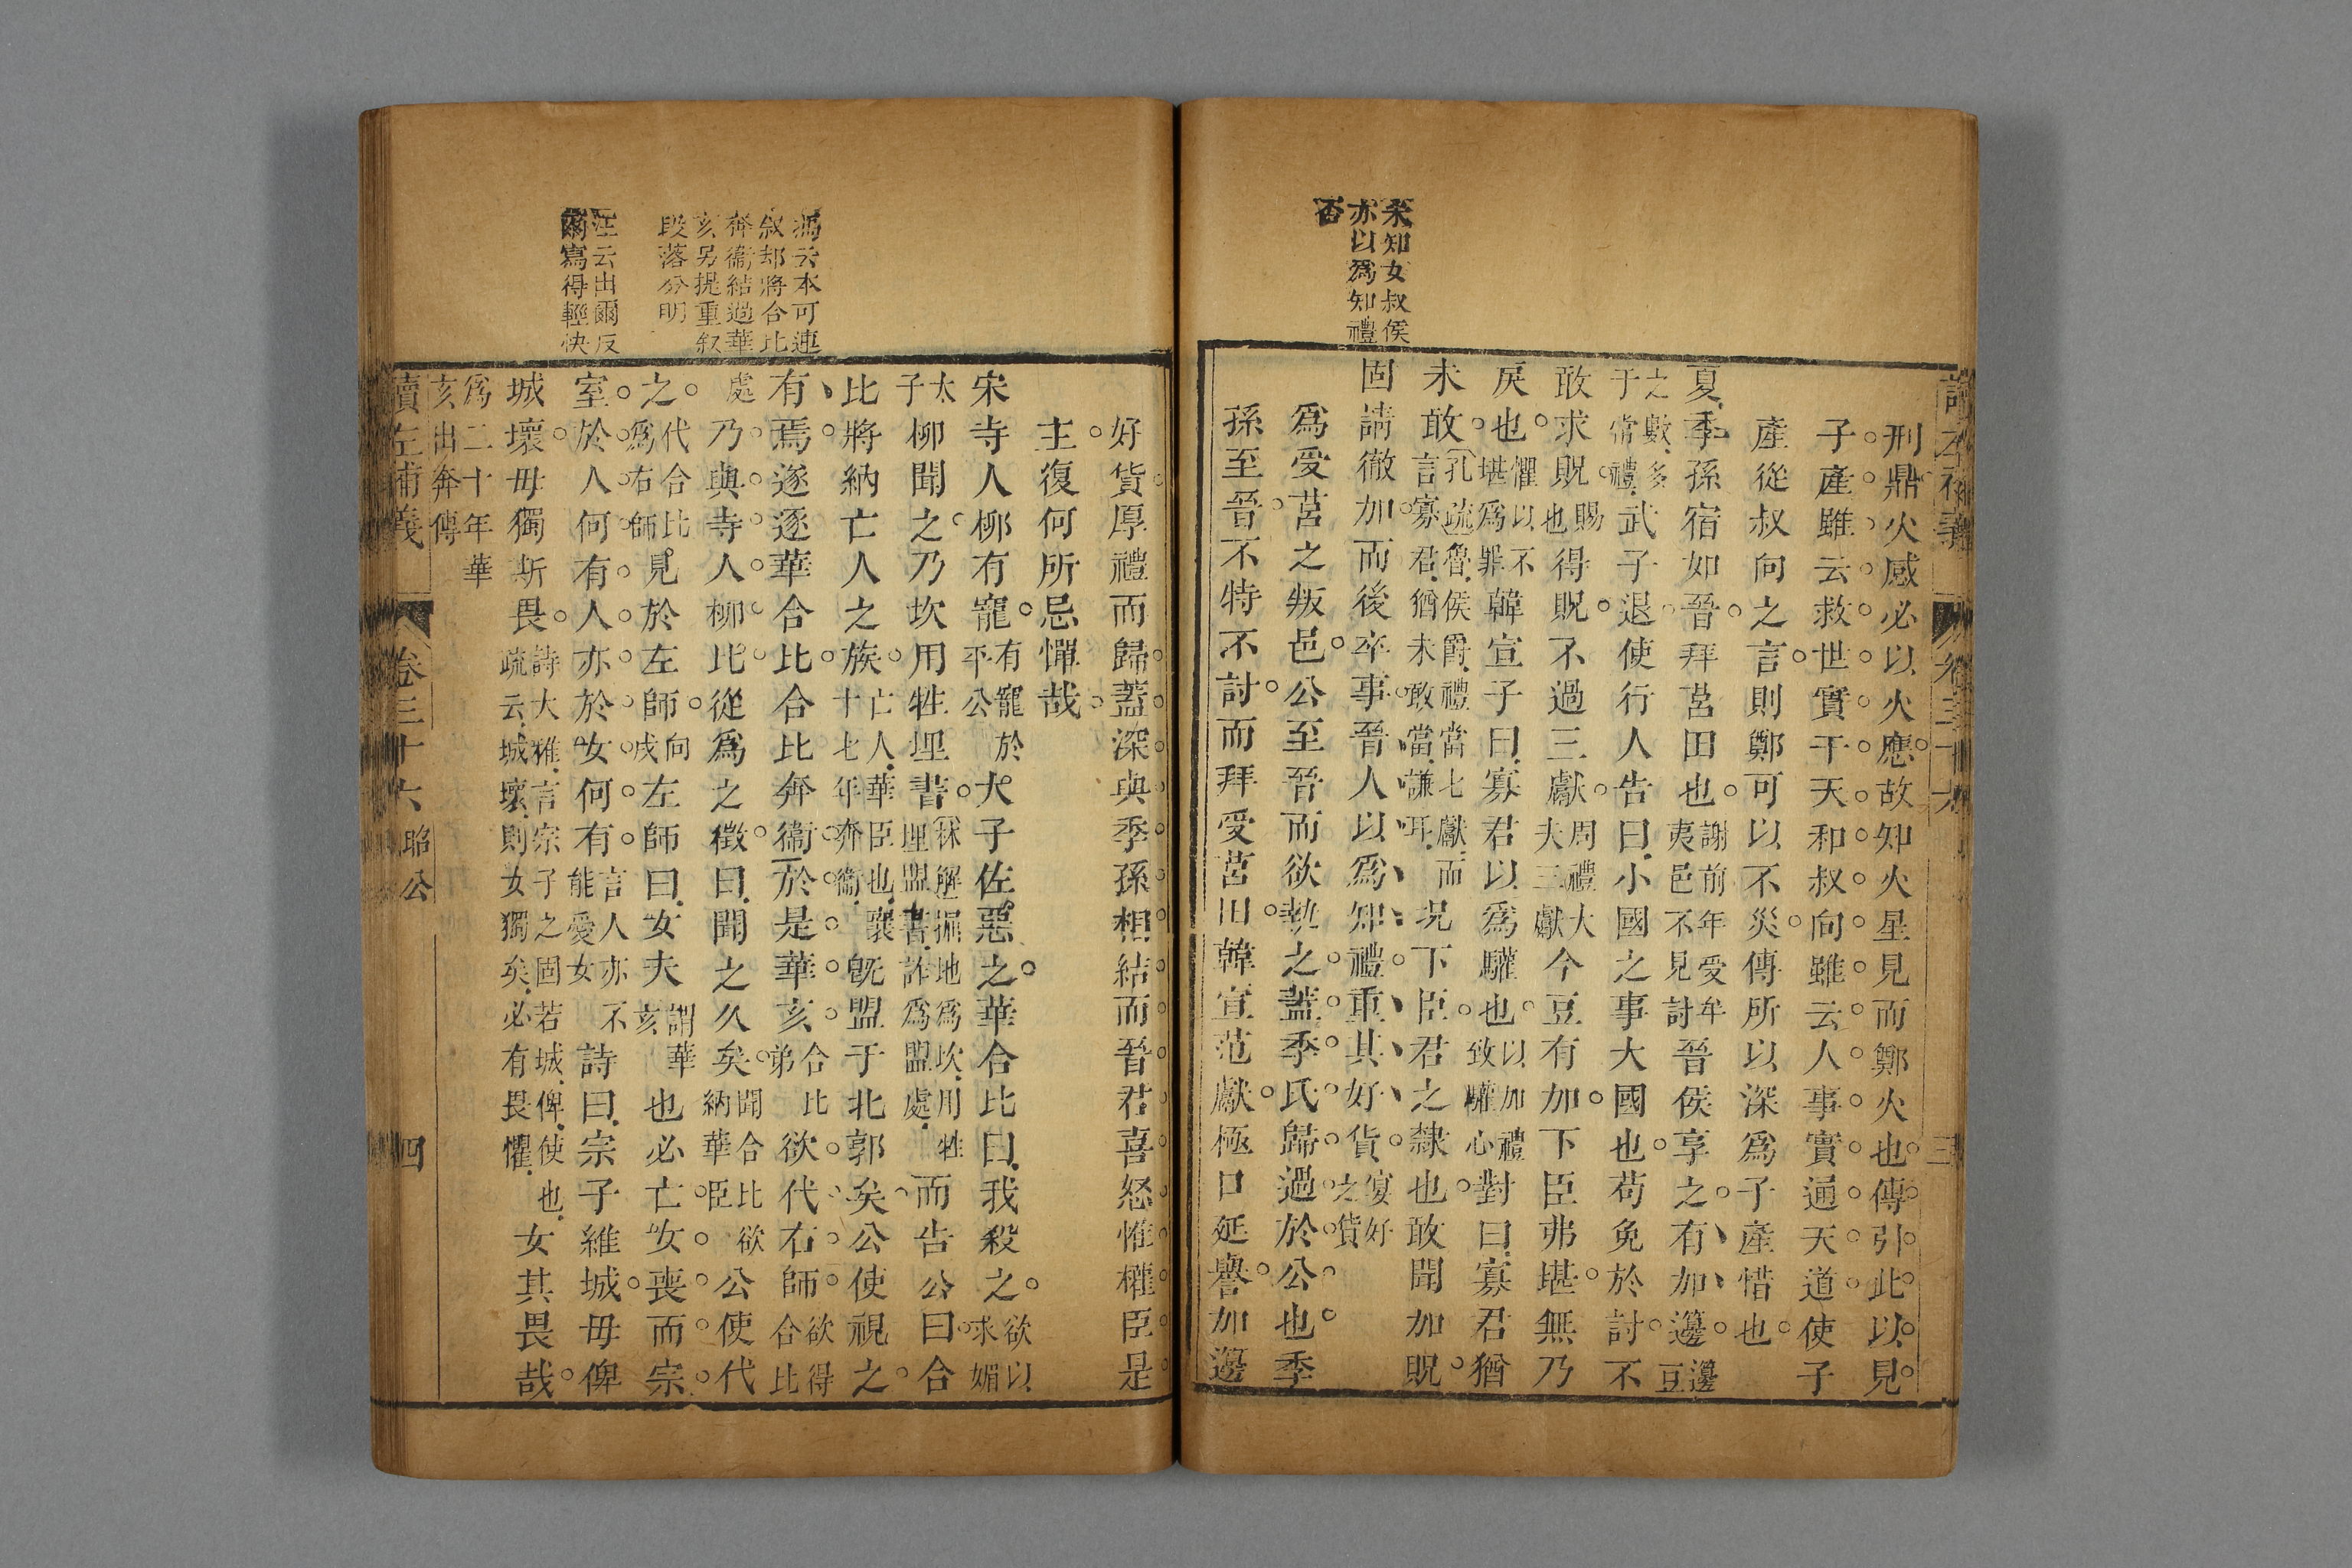 未知女叔侯
亦以爲知禮
否
刑鼎火感必以火應故知火星見而鄭火也傳引此以見
子產雖云救世實干天和叔向雖云人事實通天道使子
產從叔向之言則鄭可以不災傳所以深爲子產惜也
夏季孫宿如晉拜莒田也謝前年受牟夷邑不見討晉侯享之有加籩籩豆
之數多于常禮武子退使行人告曰小國之事大國也苟免於討不
敢求貺賜也得貺不過三獻周禮大夫三獻今豆有加下臣弗堪無乃
戾也懼以不堪爲罪韓宣子曰寡君以爲驩也以加禮致驩心對曰寡君猶
未敢孔疏魯侯爵禮當七獻而言寡君猶未敢當謙耳況下臣君之隸也敢聞加貺
固請徹加而後卒事晉人以爲知禮重其好貨宴好之貨
爲受莒之叛邑公至晉而欲執之蓋季氏歸過於公也季
孫至晉不特不討而拜受莒田韓宣范獻極口延譽加籩
三
馮云本可連
叙却將合比
奔衞結過華
亥另提重叙
段落分明
汪云出爾反
爾寫得輕快
好貨厚禮而歸蓋深與季孫相結而晉君喜怒惟權臣是
主復何所忌憚哉
宋寺人柳有寵有寵於平公大子佐惡之華合比曰我殺之欲以求媚
太子柳聞之乃坎用牲埋書林解掘地爲坎用牲埋盟書詐爲盟處而告公曰合
比將納亡人之族亡人華臣也襄十七年奔衞旣盟于北郭矣公使視之
有焉遂逐華合比合比奔衞於是華亥合比弟欲代右師欲得合比
處乃與寺人柳比從爲之徵曰聞之久矣聞合比欲納華臣公使代
之代合比爲右師見於左師向戌左師曰女夫謂華亥也必亡女喪而宗
室於人何有人亦於女何有言人亦不能愛女詩曰宗子維城毋俾
城壞毋獨斯畏詩大雅言宗子之固若城俾使也疏云城壞則女獨矣必有畏懼女其畏哉
爲二十年華亥出奔傳
讀左補義
卷三十六
昭公
四